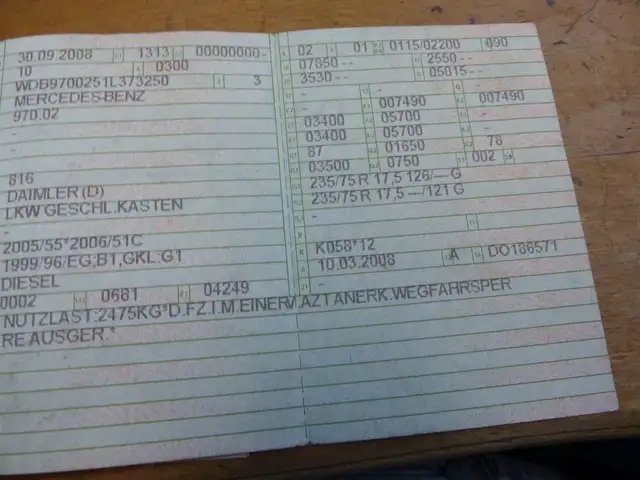 30.09.2008 1313 00000000-
10 0300
WDB9700251L373250 3
MERCEDES-BENZ
970.02
816
DAIMLER (D)
LKW GESCHL.KASTEN
-
2005/55*2006/51C
1999/96/EG;B1,GKL:G1
DIESEL
0002 0681 04249
02 01 0115/02200 090
07850-- 2550--
3530-- 05015--
- - -
- 007490 007490
03400 05700 -
03400 05700 -
87 01650 78
03500 0750 002
235/75 R 17,5 126/--- G
235/75 R 17,5 ---/121 G
-
-
K058*12
10.03.2008 A DO186571
-
NUTZLAST:2475KG*D.FZ.I.M.EINERV.AZT ANERK.WEGFAHRSPER
RE AUSGER.*